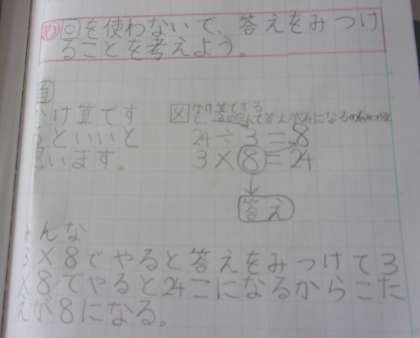 め 図を使わないで、答えをみつけ
ることを考えよう。
け算です
るといいと
思います。
24÷3=8
3×8=24
答え
んな
3×8でやると答えをみつけて3
×8でやると24こになるからこた
えが8になる。